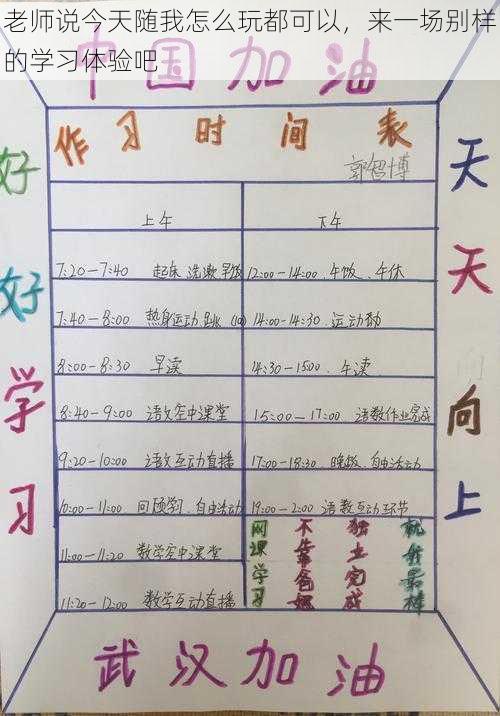 老师说今天随我怎么玩都可以，来一场别样
的学习体验吧
中国加油
好好学习
天天向上
作习时间表
郭智博
上午
下午
7:20—7:40 起床 洗漱 早饭
12:00—14:00 午饭、午休
7:40—8:00 热身运动 跳
14:00—14:30 运动
8:00—8:30 早读
14:30—1500 午读
8:40—9:00 语文空中课堂
15:00—17:00 语数作业完成
9:20—10:00 语文互动直播
17:00—18:30 晚饭、自由活动
10:00—11:00 回顾学习、自由活动
19:00—2:00 语数互动环节
11:00—11:20 数学空中课堂
11:20—12:00 数学互动直播
网课学习
不靠爸妈
独立完成
我最棒
武汉加油